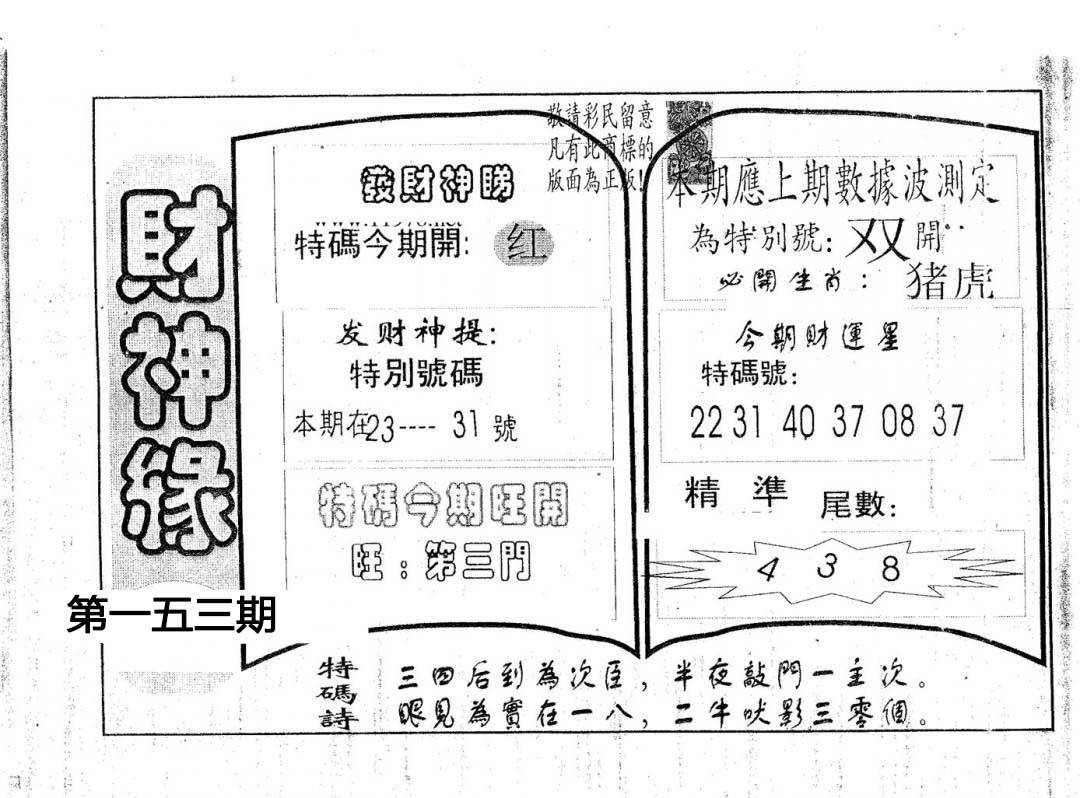 財神緣
第一五三期
敬請彩民留意
凡有此商標的
版面為正版!
發財神睇
特碼今期開: 红
发财神提:
特別號碼
本期在23----31號
特碼今期旺開
旺:第三門
本期應上期數據波測定
為特別號: 双 開
必開生肖: 猪虎
今期財運星
特碼號:
22 31 40 37 08 37
精準 尾數:
4 3 8
特碼詩
三四后到為次臣,半夜敲門一主次。
眼見為實在一八,二牛吠影三零個。